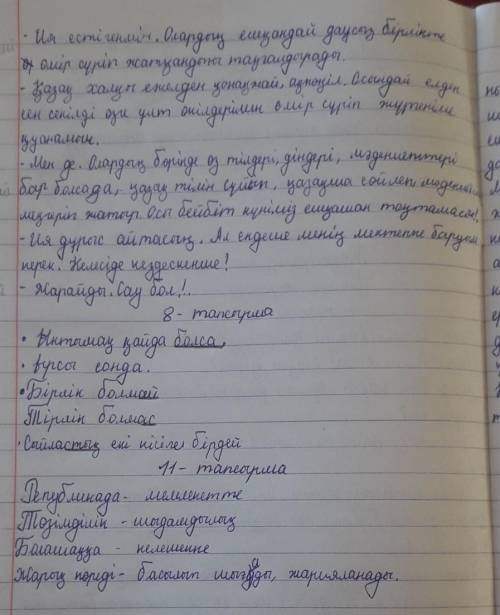 - Ия естігенмін. Олардың ешқандай даусыз бірлікте
өмір сүріп жатқандығы таңғалдырады.
- Қазақ халқы ежелден қонақжай, ақкөңіл. Осындай елден
сен секілді өзге ұлт өкілдерімен өмір сүріп жүргеніме
қуанамын.
- Мен де. Олардың бәрінде өз тілдері, діндері, мәдениеттері
бар болсада, қазақ тілін сүйіп, қазақша сөйлеп мәдениетті
меңгеріп жатыр. Осы бейбіт күніміз ешқашан тоқтамасын!
- Ия дұрыс айтасың. Ал ендеше менің мектепке баруым
керек. Келесіде кездескенше!
- Жарайды. Сау бол!
8 - тапсырма
• Ынтымақ қайда болса,
• ырсы сонда.
• Бірлік болмай
Тірлік болмас
• Сыйластық екі кісіге бірдей
11 - тапсырма
Республикада - мемлекетте
Төзімділік - шыдамдылық
Болашаққа - келешекке
Жарық көреді - басылып шығады, жарияланады.